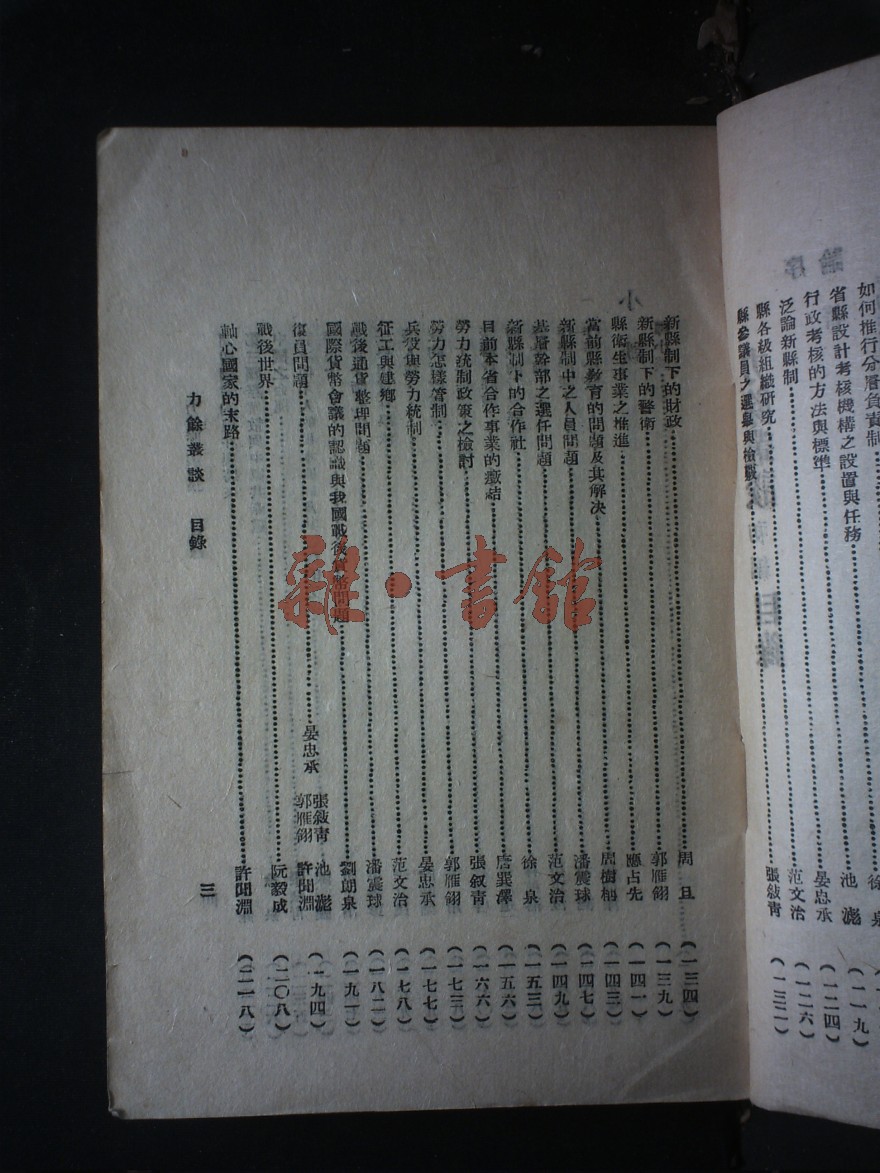 如何推行分層負責制
省縣設計考核機構之設置與任務……徐 泉
行政考核的方法與標準……池 澎(一一九)
泛論新縣制……晏忠承(一二四)
縣各級組織研究……范文治(一二六)
縣參議員之選舉與檢覈……張敍靑(一三二)
新縣制下的財政……周 旦(一三四)
新縣制下的警衛……郭雁翎(一三九)
縣衛生事業之推進……應占先(一四一)
當前縣教育的問題及其解决……周樹(一四三)
新縣制中之人員問題……潘震球(一四七)
基層幹部之選任問題……范文治(一四九)
新縣制下的合作社……徐 泉(一五三)
目前本省合作事業的癥結……唐巽澤(一五六)
勞力統制政策之檢討……張叙青(一六六)
勞力怎樣管制……郭雁翎(一七三)
兵役與勞力統制……晏忠承(一七七)
征工與建鄉……范文治(一七八)
戰後通貨整理問題……潘震球(一八二)
國際貨幣會議的認識與我國戰後貨幣問題……劉朗泉(一九一)
復員問題……晏忠承 張敍靑 郭雁翎 池 澎 許聞淵(一九四)
戰後世界……阮毅成(二〇八)
軸心國家的末路……許聞淵(二一八)
力餘叢談 目錄 三
雜·書館